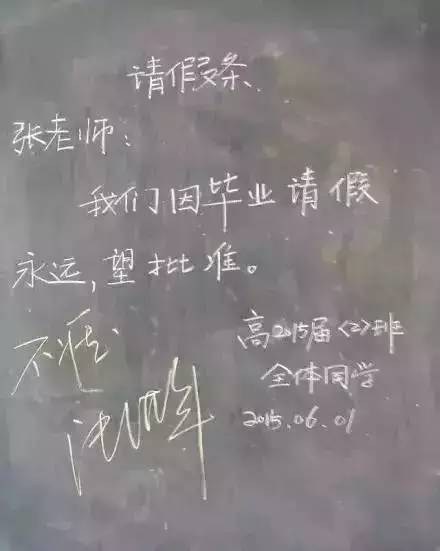 请假条
张老师：
我们因毕业请假
永远，望批准。
高2015届<2>班
全体同学
2015.06.01